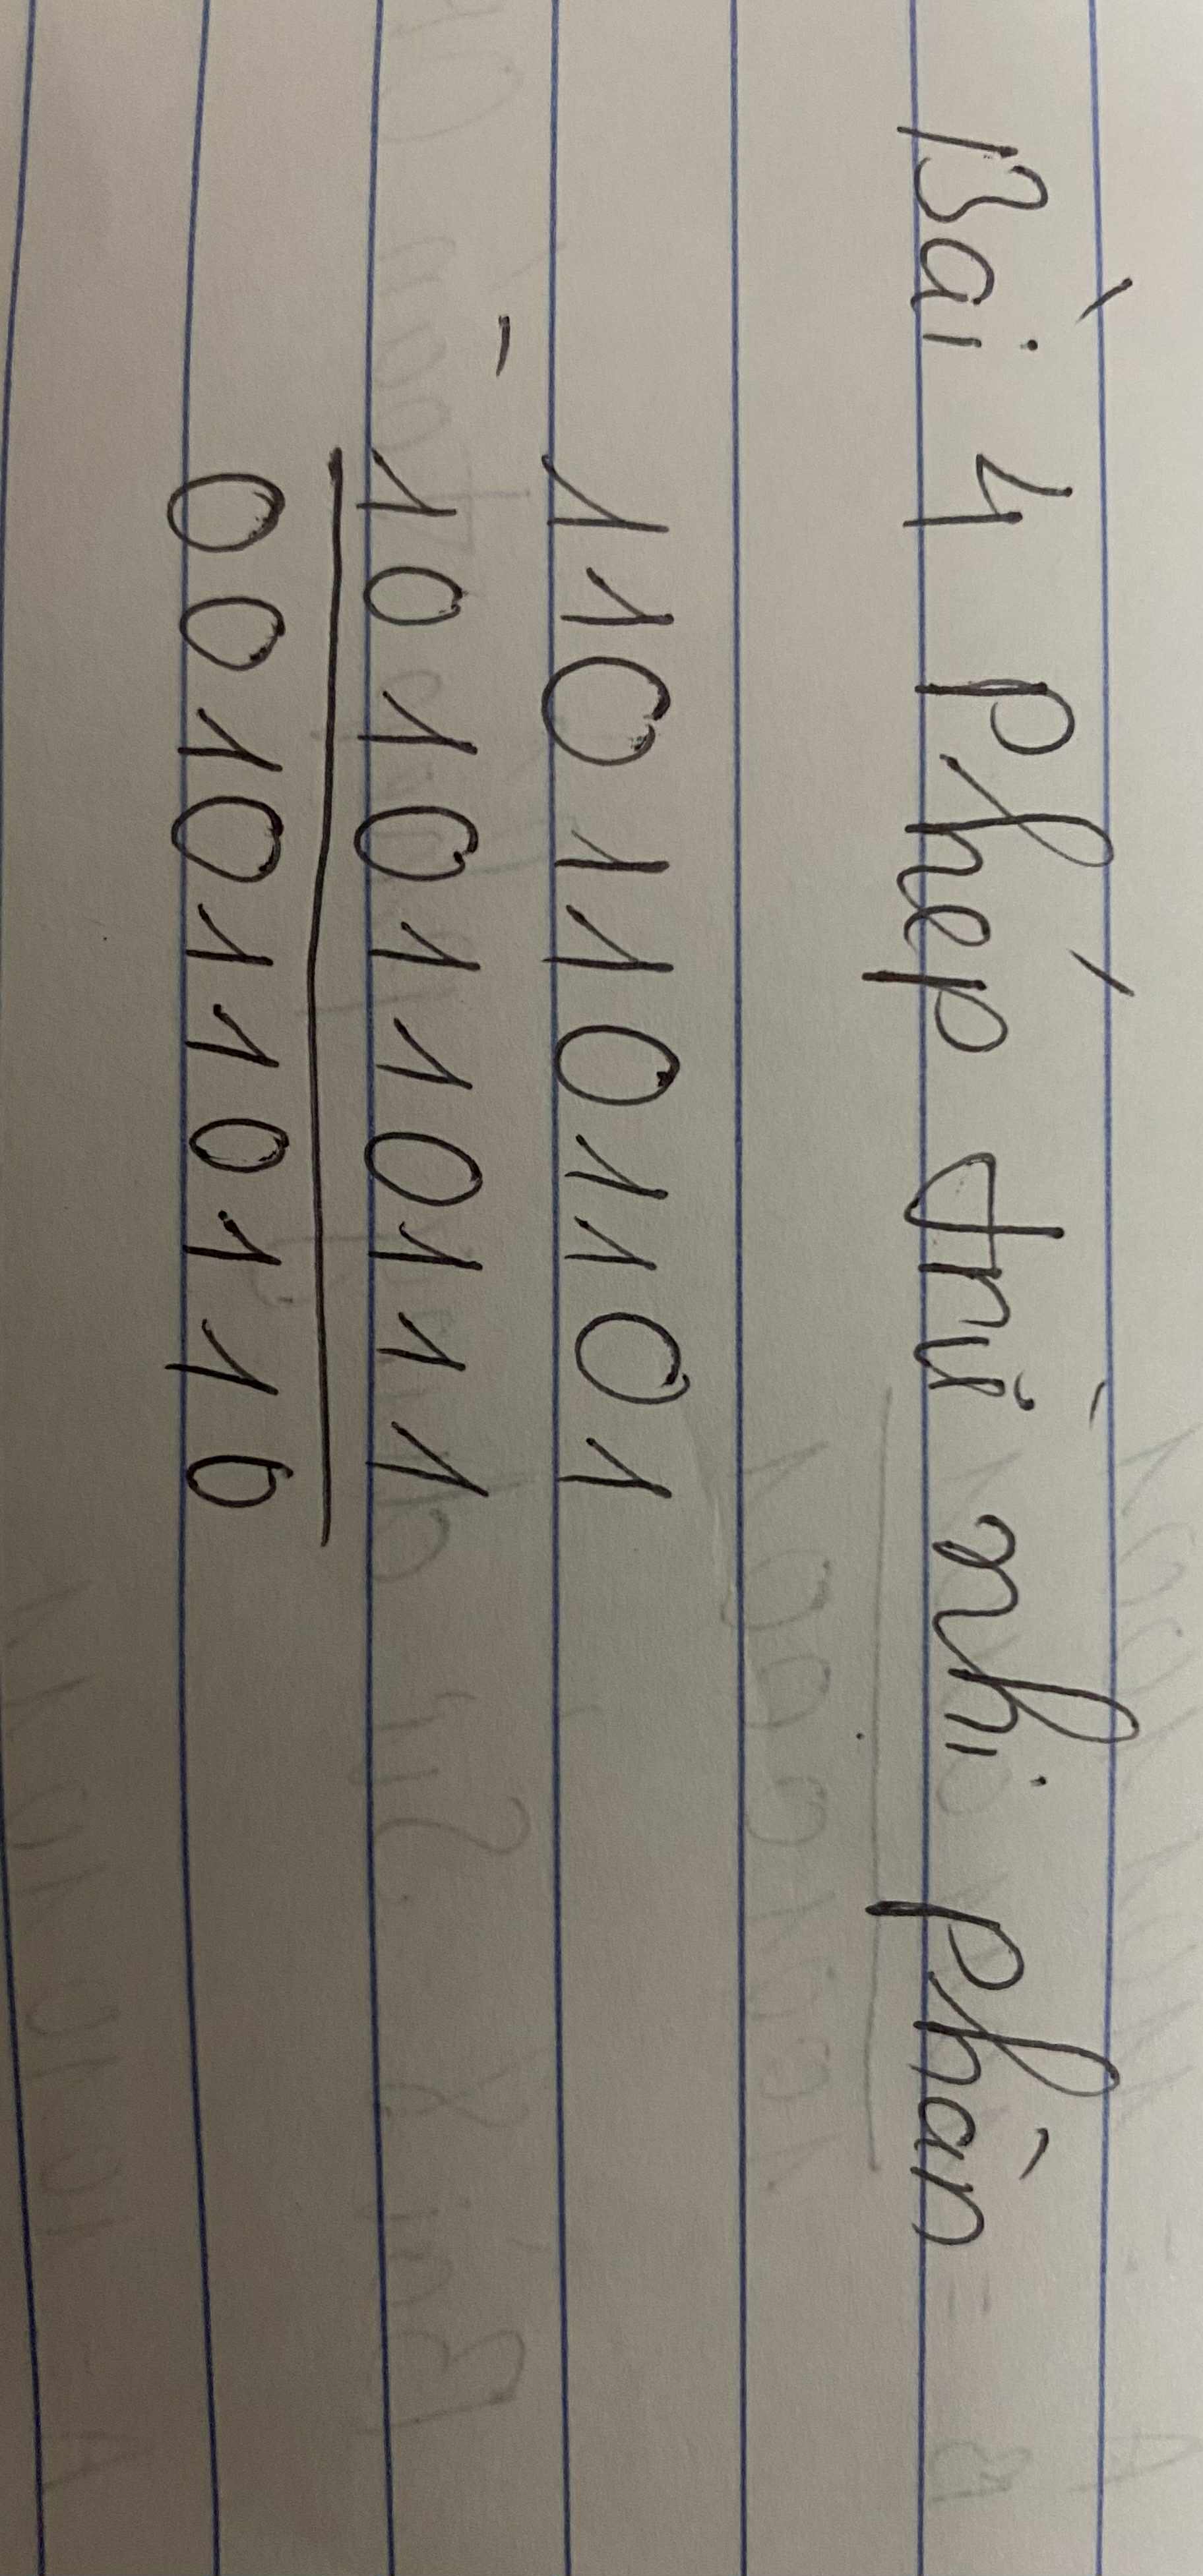 Bài 4 Phép trừ nhi phàn
1101101101
-
1010110111
0010110110